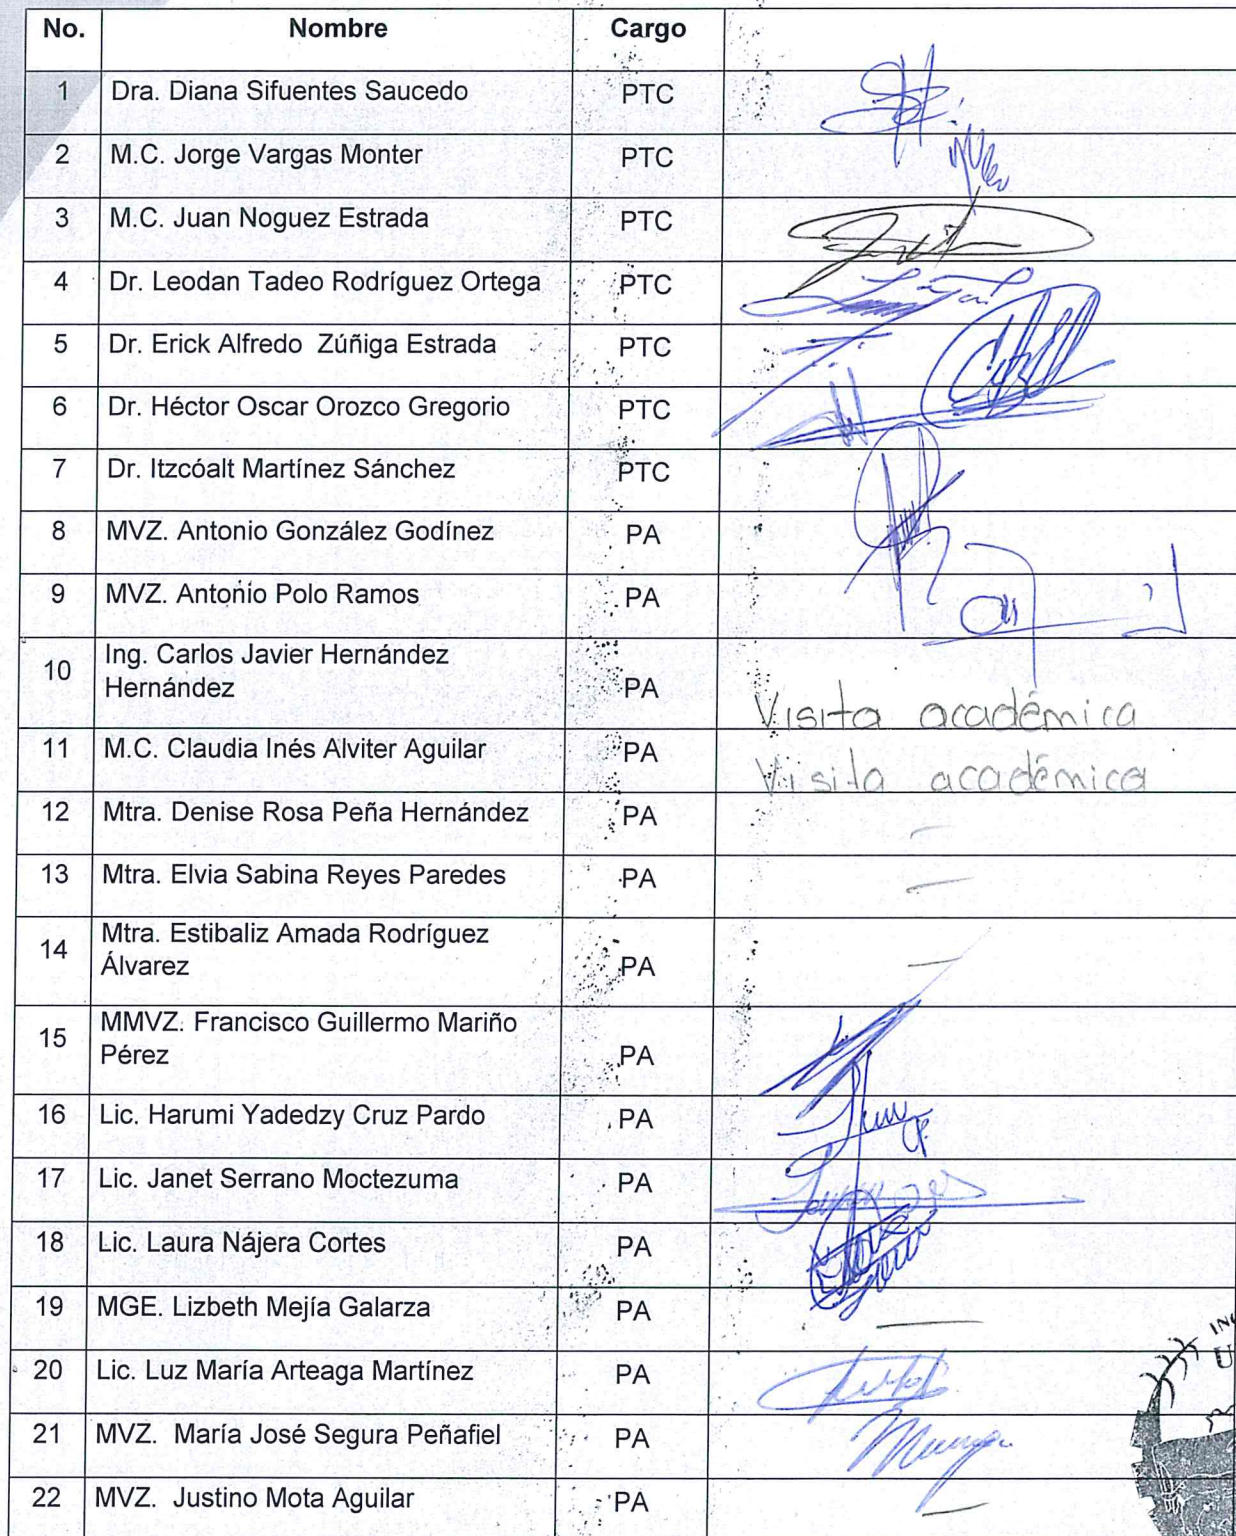 No. Nombre Cargo
1 Dra. Diana Sifuentes Saucedo PTC
2 M.C. Jorge Vargas Monter PTC
3 M.C. Juan Noguez Estrada PTC
4 Dr. Leodan Tadeo Rodríguez Ortega PTC
5 Dr. Erick Alfredo  Zúñiga Estrada PTC
6 Dr. Héctor Oscar Orozco Gregorio PTC
7 Dr. Itzcóalt Martínez Sánchez PTC
8 MVZ. Antonio González Godínez PA
9 MVZ. Antonio Polo Ramos PA
10 Ing. Carlos Javier Hernández
Hernández PA Visita académica
11 M.C. Claudia Inés Alviter Aguilar PA Visita académica
12 Mtra. Denise Rosa Peña Hernández PA –
13 Mtra. Elvia Sabina Reyes Paredes PA –
14 Mtra. Estibaliz Amada Rodríguez
Álvarez PA –
15 MMVZ. Francisco Guillermo Mariño
Pérez PA
16 Lic. Harumi Yadedzy Cruz Pardo PA
17 Lic. Janet Serrano Moctezuma PA
18 Lic. Laura Nájera Cortes PA
19 MGE. Lizbeth Mejía Galarza PA –
20 Lic. Luz María Arteaga Martínez PA
21 MVZ.  María José Segura Peñafiel PA
22 MVZ.  Justino Mota Aguilar PA –